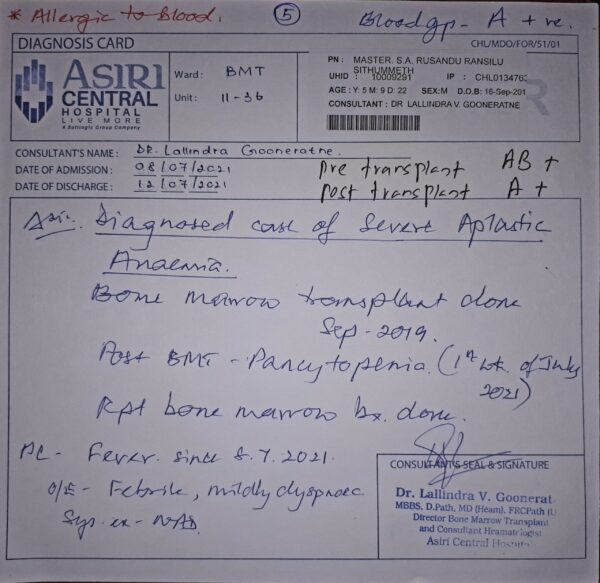 * Allergic to Blood.
5
Blood gp - A + ve.
DIAGNOSIS CARD
CHL/MDO/FOR/51/01
ASIRI
CENTRAL
HOSPITAL
LIVE MORE
A Softlogic Group Company
Ward: BMT
Unit: 11-36
PN : MASTER. S.A. RUSANDU RANSILU
SITHUMMETH
UHID : 10009291 IP : CHL013476
AGE : Y: 5 M: 9 D: 22 SEX:M D.O.B: 16-Sep-201
CONSULTANT : DR LALLINDRA V. GOONERATNE
CONSULTANT'S NAME: DR. Lallindra Gooneratne.
DATE OF ADMISSION: 08/07/2021
DATE OF DISCHARGE: 12/07/2021
Pre transplant AB +
Post transplant A +
Diagnosed case of Severe Aplastic
Anaemia.
Bone marrow transplant done
Sep - 2019.
Post BMT - Pancytopenia. (1st wk. of July
2021)
Rpt bone marrow bx. done.
PC - Fever. since 8.7.2021.
O/E - Febrile, mildly dyspnoec
Sys. ex - NAD.
CONSULTANT'S SEAL & SIGNATURE
Dr. Lallindra V. Goonerat
MBBS, D.Path, MD (Heam), FRCPath (U
Director Bone Marrow Transplant
and Consultant Heamatologist
Asiri Central Hospital